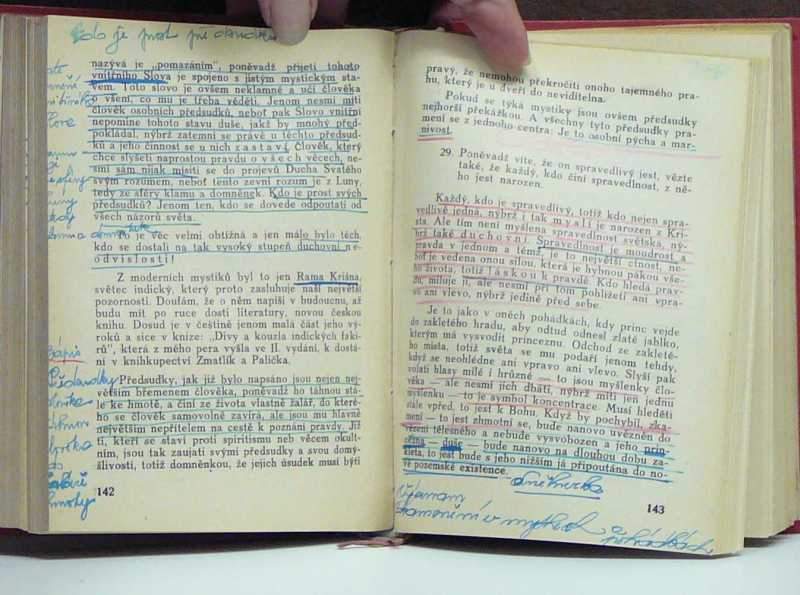 kdo je prost před
nazývá je „pomazáním“, poněvadž přijetí tohoto
vnitřního Slova je spojeno s jistým mystickým sta-
vem. Toto slovo je ovšem neklamné a učí člověka
o všem, co mu je třeba věděti. Jenom nesmí míti
člověk osobních předsudků, neboť pak Slovo vnitřní
nepomíne tohoto stavu duše, jaký by mnohý před-
pokládal, nýbrž zatemní se právě u těchto předsud-
ků a jeho činnost se u nich zastaví. Člověk, který
chce slyšeti naprostou pravdu o všech věcech, ne-
smí sám nijak mísiti se do projevů Ducha Svatého
svým rozumem, neboť tento zevní rozum je z Luny,
tedy ze sféry klamu a domněnek. Kdo je prost svých
předsudků? Jenom ten, kdo se dovede odpoutati od
všech názorů světa.
To je věc velmi obtížná a jen málo bylo těch,
kdo se dostali na tak vysoký stupeň duchovní ne-
odvislosti!
Z moderních mystiků byl to jen Rama Krišna,
světec indický, který proto zasluhuje naší největší
pozornosti. Doufám, že o něm napíši v budoucnu, až
budu míti po ruce dosti literatury, novou českou
knihu. Dosud je v češtině jenom malá část jeho vý-
roků a sice v knize: „Divy a kouzla indických fakí-
rů“, která z mého pera vyšla ve II. vydání, k dostá-
ní v knihkupectví Zmatlík a Palička.
Předsudky, jak již bylo napsáno jsou nejen nej-
větším břemenem člověka, poněvadž ho táhnou stá-
le ke hmotě, a činí ze života vlastně žalář, do které-
ho se člověk samovolně zavírá, ale jsou mu hlavně
největším nepřítelem na cestě k poznání pravdy. Již
ti, kteří se staví proti spiritismu neb věcem okult-
ním, jsou tak zaujati svými předsudky a svou domý-
šlivostí, totiž domněnkou, že jejich úsudek musí býti
Předsudky
hmoty
142
pravý, že nemohou překročiti onoho tajemného pra-
hu, který je u dveří do neviditelna.
Pokud se týká mystiky jsou ovšem předsudky
nejhorší překážkou. A všechny tyto předsudky pra-
mení se z jednoho centra: Je to osobní pýcha a mar-
nivost.
29. Poněvadž víte, že on spravedlivý jest, vězte
také, že každý, kdo činí spravedlnost, z ně-
ho jest narozen.
Každý, kdo je spravedlivý, totiž kdo nejen spra-
vedlivě jedná, nýbrž i tak myslí je narozen z Kri-
sta. Ale tím není myšlena spravedlnost světská, ný-
brž také duchovní. Spravedlnost je moudrost a
pravda v jednom a témž, je to největší ctnost, ne-
boť je vedena onou silou, která je hybnou pákou vše-
ho života, totiž láskou k pravdě. Kdo hledá prav-
du, miluje ji, ale nesmí při tom pohlížeti ani vpra-
vo ani vlevo, nýbrž jedině před sebe.
Je to jako v oněch pohádkách, kdy princ vejde
do zakletého hradu, aby odtud odnesl zlaté jablko,
kterým má vysvoditi princeznu. Odchod ze zakleté-
ho místa, totiž světa se mu podaří jenom tehdy,
když se neohlédne ani vpravo ani vlevo. Slyší pak
volati hlasy milé i hrůzné — to jsou myšlenky člo-
věka — ale nesmí jich dbáti, nýbrž míti jen jedinou
myšlenku — to je symbol koncentrace. Musí hleděti
stále vpřed, to jest k Bohu. Když by pochybil, zka-
mení — to jest zhmotní se, bude nanovo uvězněn do
vězení tělesného a nebude vysvobozen a jeho prin-
cezna — duše — bude nanovo na dlouhou dobu za-
kleta, to jest bude s jeho nižším já připoutána do no-
vé pozemské existence.
Význam
zkamenění v mythech a
pohádkách
143